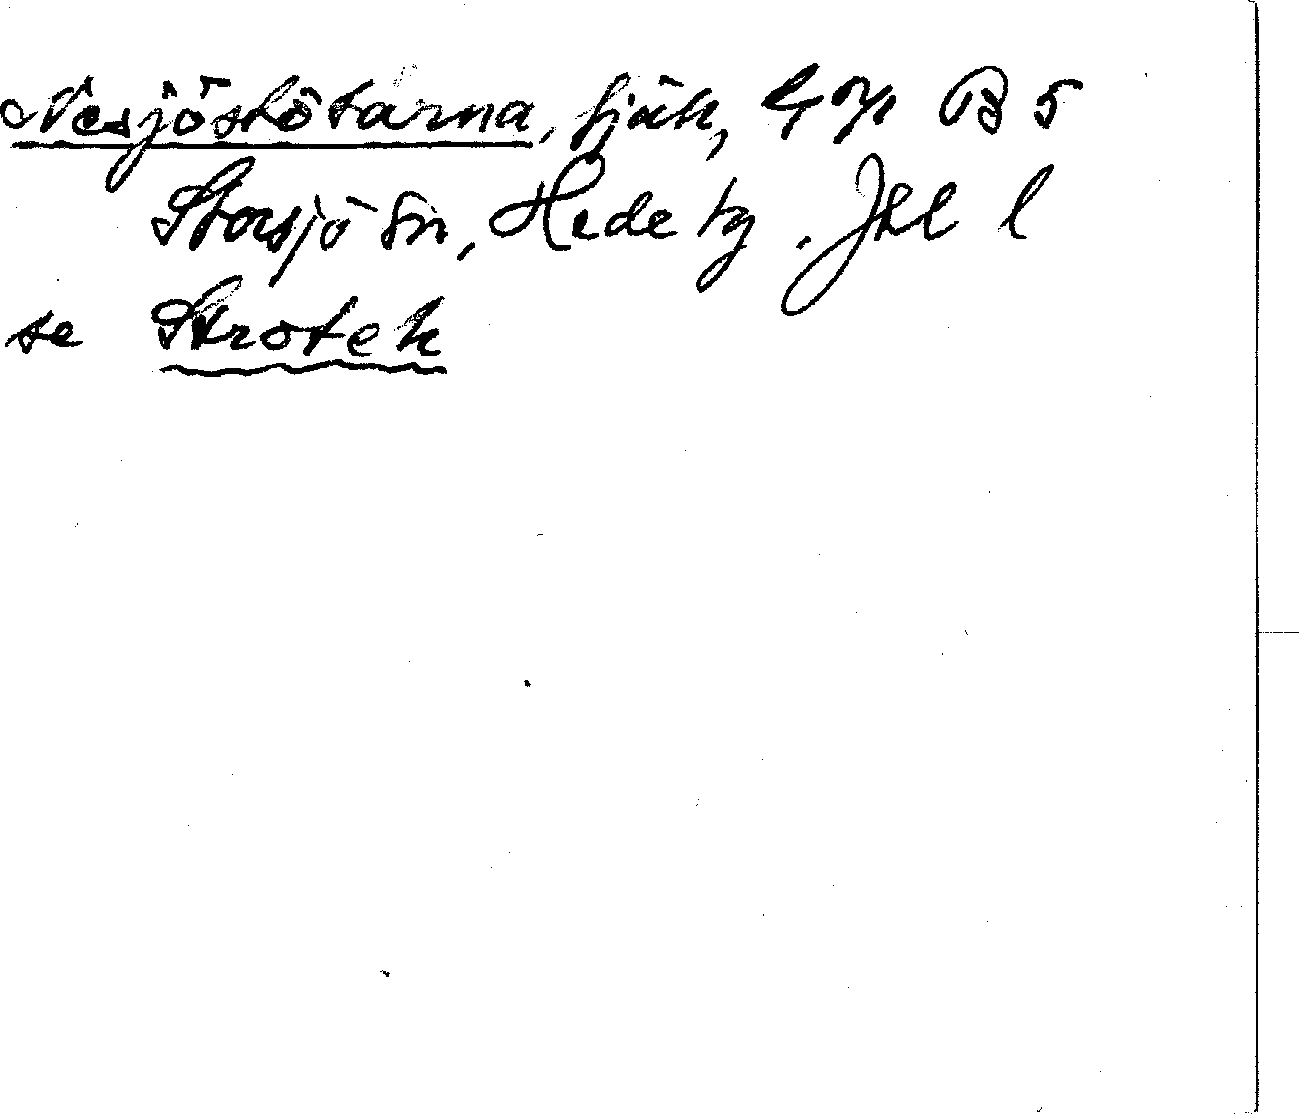 Nesjöstötarna, fjäll, Ggp B 5
Storsjö sn, Hede tg. Jtl l
se Stroteh